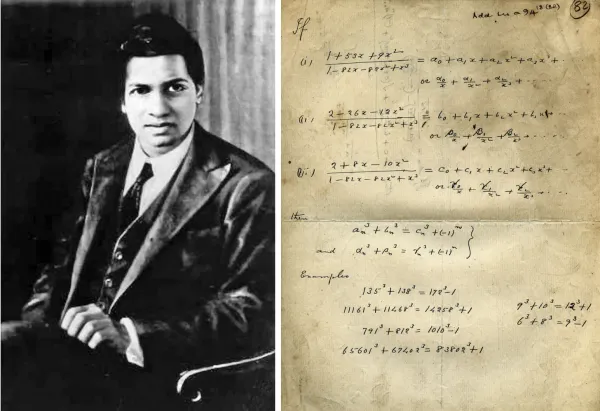 82
If
(i) (1+53x+9x²)/(1-82x-82x²+x³) = a₀+a₁x+a₂x²+a₃x³+...
or α₀/x + α₁/x² + α₂/x³ + ...
(ii) (2-26x-12x²)/(1-82x-82x²+x³) = b₀+b₁x+b₂x²+b₃x³+...
or β₀/x + β₁/x² + β₂/x³ + ...
(iii) (2+8x-10x²)/(1-82x-82x²+x³) = c₀+c₁x+c₂x²+c₃x³+...
or γ₀/x + γ₁/x² + γ₂/x³ + ...
then
aₙ³+bₙ³ = cₙ³+(-1)ⁿ
and αₙ³+βₙ³ = γₙ³+(-1)ⁿ }
Examples
135³+138³ = 172³-1
11161³+11468³ = 14258³+1
791³+812³ = 1010³-1
65601³+67402³ = 83802³+1
9³+10³ = 12³+1
6³+8³ = 9³-1